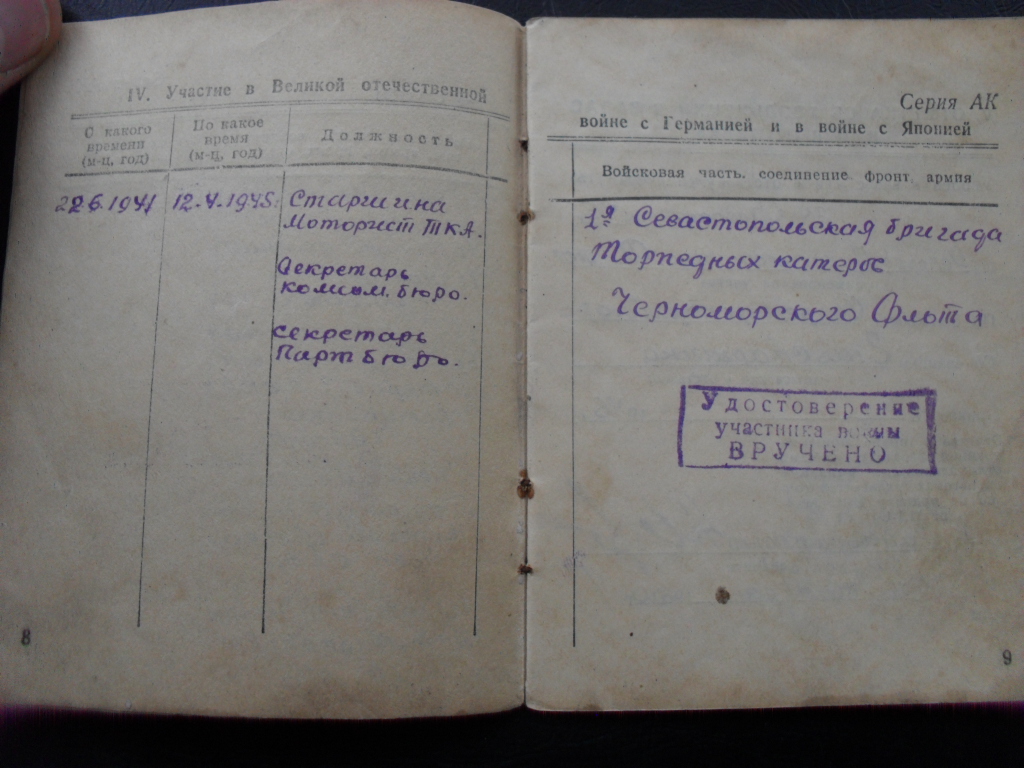 IV. Участие в Великой отечественной
С какого времени (м-ц, год)
По какое время (м-ц, год)
Должность
22.6.1941
12.4.1945.
Старшина
Моторист ТКА.
Секретарь
комсом. бюро.
Секретарь
Партбюро.
8
Серия АК
войне с Германией и в войне с Японией
Войсковая часть, соединение фронт, армия
1я Севастопольская бригада
Торпедных катеров
Черноморского Флота
Удостоверение
участника войны
ВРУЧЕНО
9